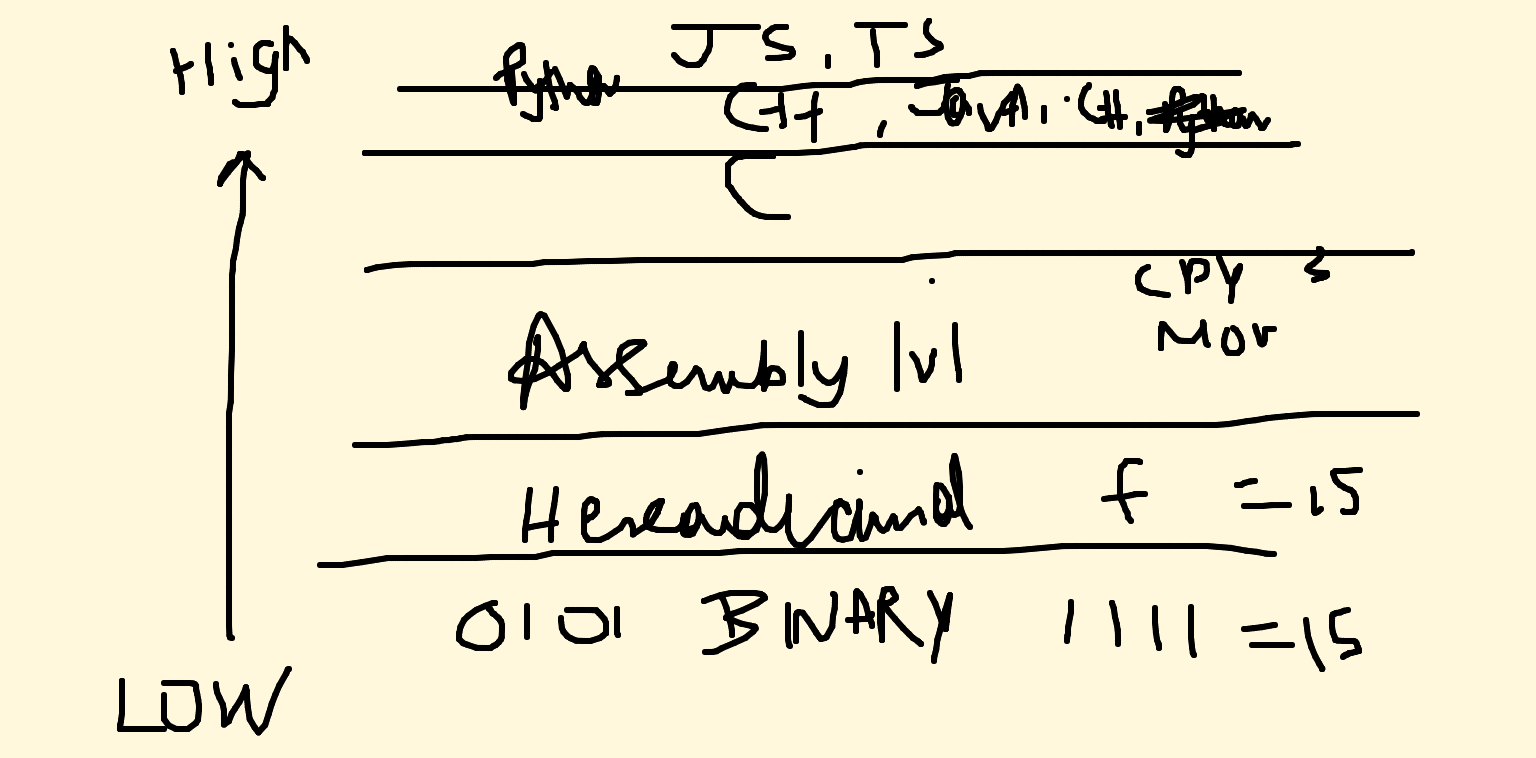 High
JS, TS
Python
C++, JavA, C#,
C
CPY
Mov
Assembly lvl
Hexadecimal f =15
0101 BINARY 1111 =15
LOW